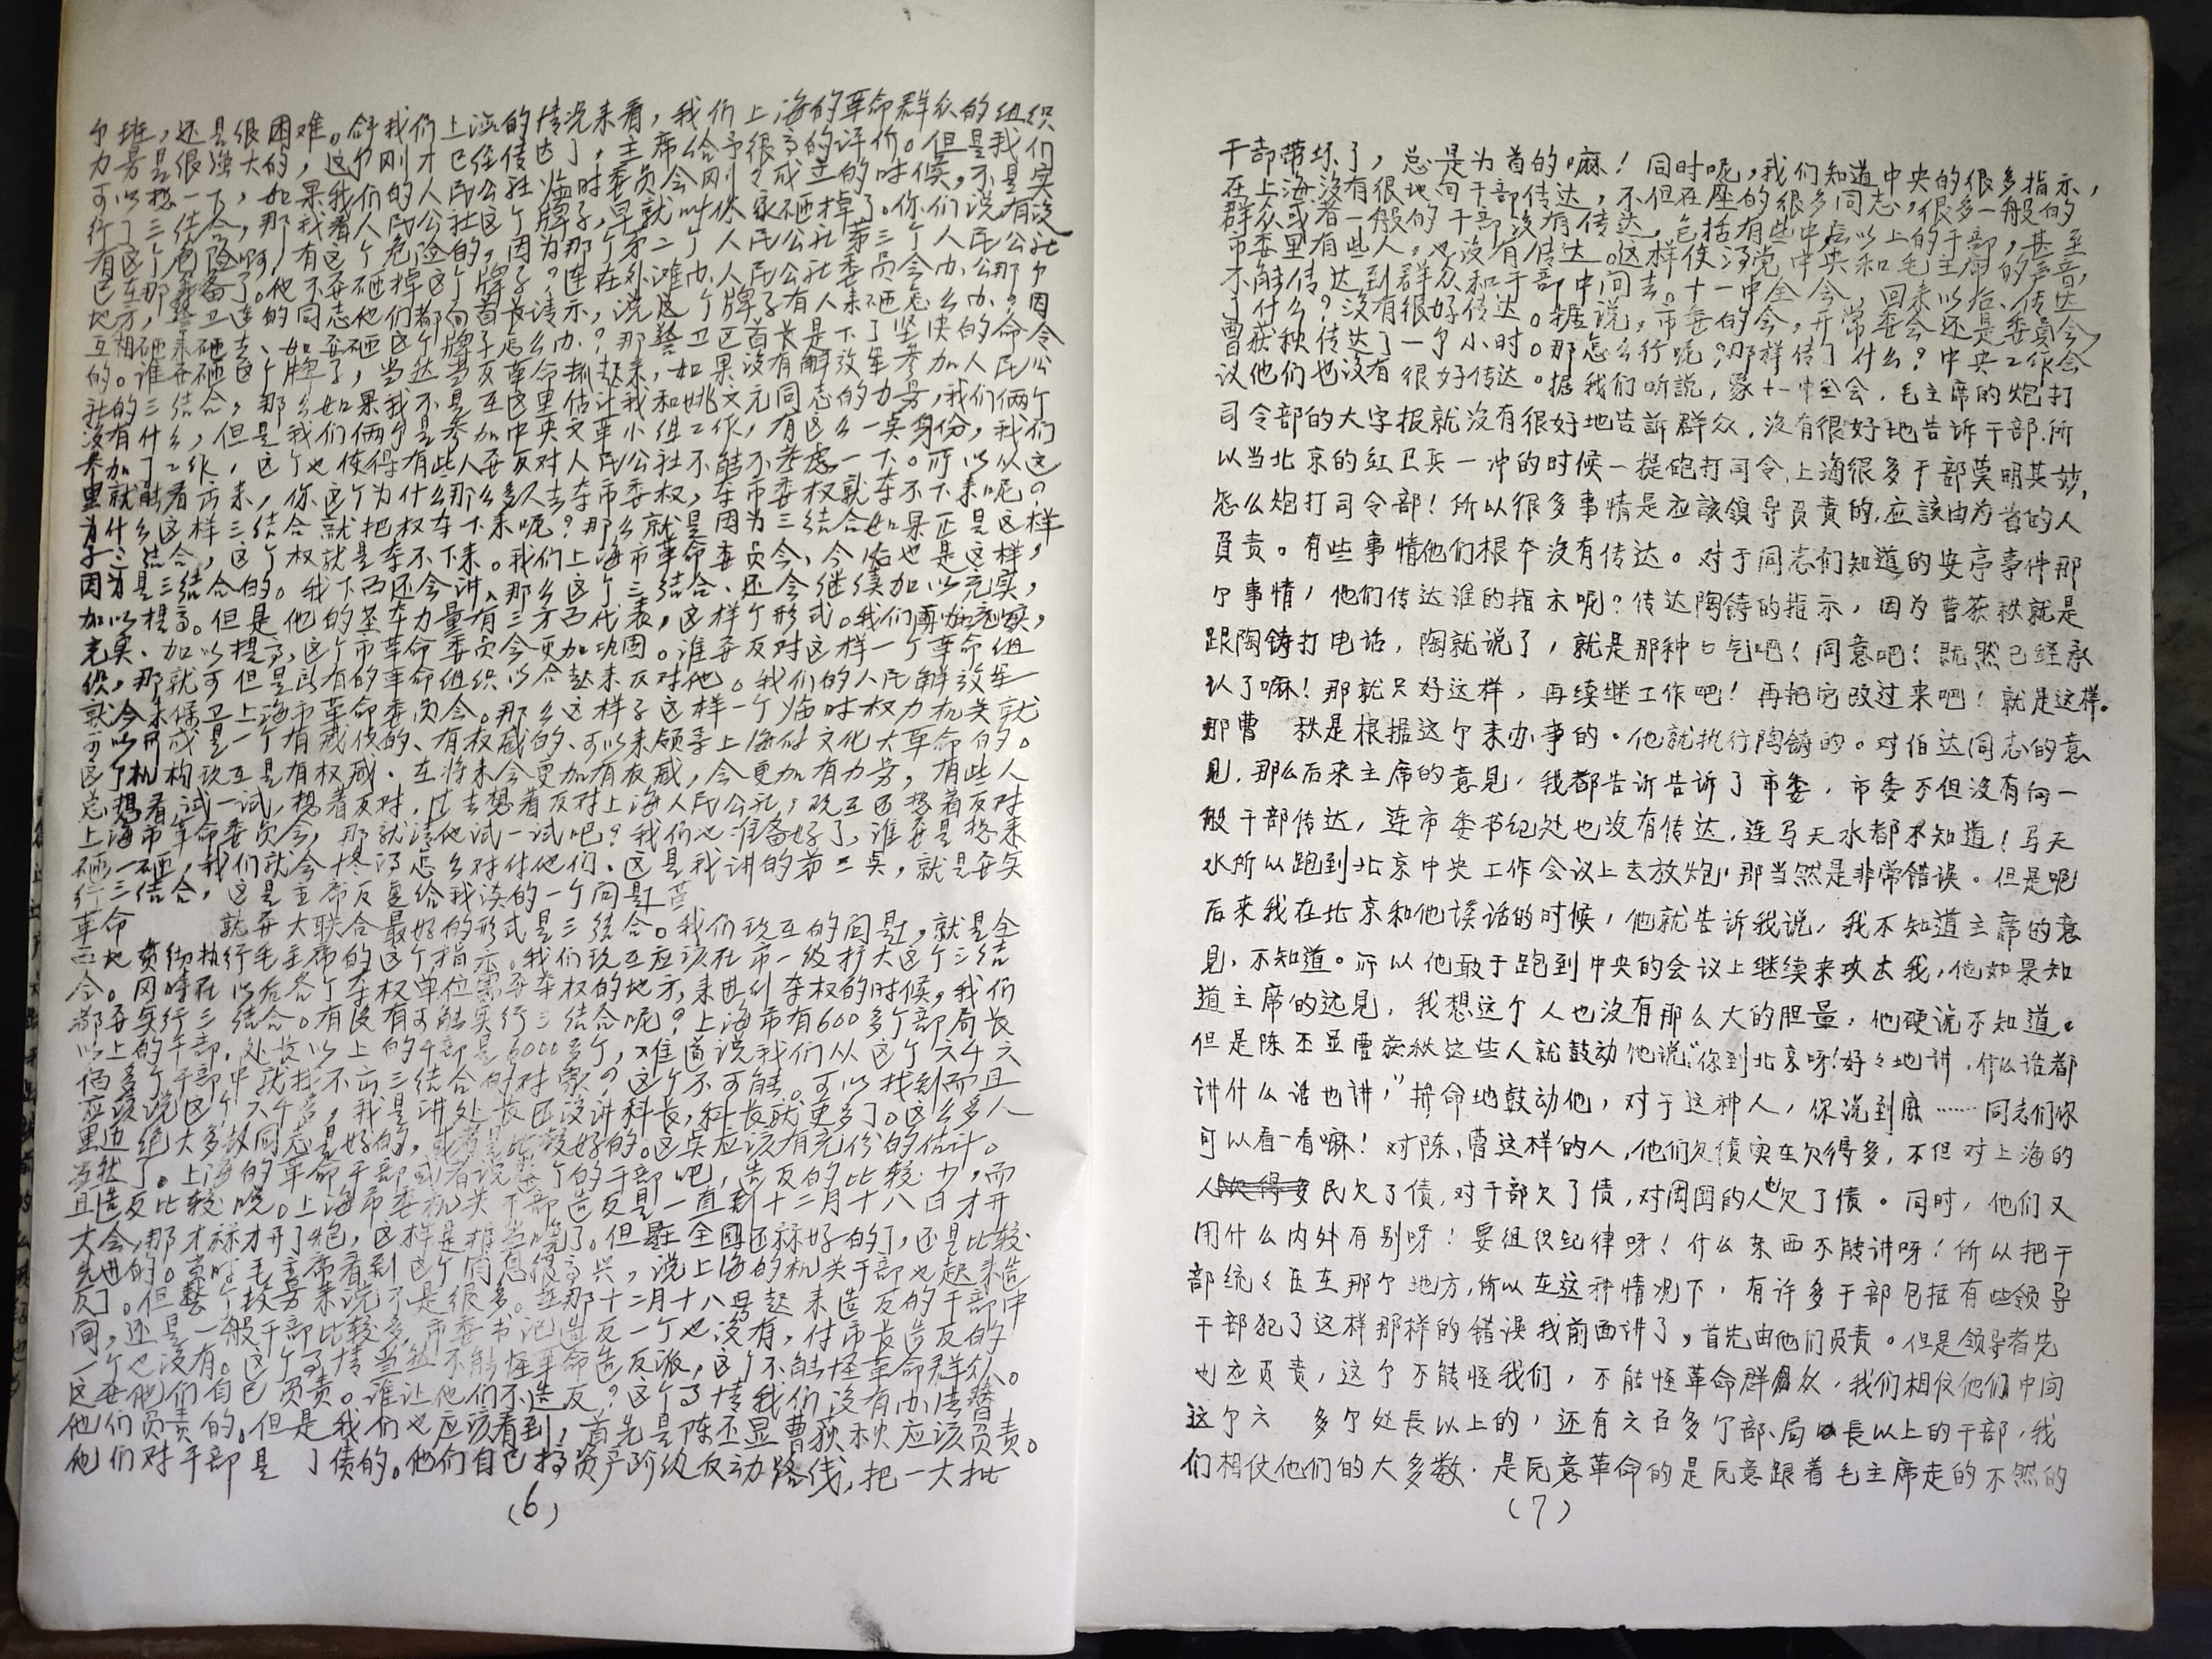 个班，还是很困难。从我们上海的情况来看，我们上海的革命群众的组织
力量是很强大的，这个刚才已经传达了，主席给予很高的评价。但是我们
可以想一下，如果我们的人民公社临时委员会刚刚成立的时候，不是实
行了三结合，那我看人民公社这个牌子，早就叫人家砸掉了。你们说有没
有这个危险啊？有这个危险的，因为那个第二个人民公社第三个人民公社
已在那筹备了。他不要砸掉这个牌子？连在外滩办人民公社委员会办公那个
地方，警卫连的同志他们都向首长请示，说这个牌子有人来砸怎么办？因
互相砸来砸去、如要砸这个牌子怎么办？那警卫区首长是下了坚决的命令
的。谁要砸这个牌子，当达当反革命抓起来，如果没有解放军参加人民公
社的三结合，那么如果我不是在这里估计我和姚文元同志的力量，我们俩个
没有什么，但是我们俩个是参加中央文革小组工作，有这么一点身份，我们
参加了工作，这个也使得有些人要反对人民公社不能不考虑一下。所以从这
里就能看出来，你这个为什么那么多人去夺市委权，夺市委权就夺不下来呢？
为什么这样三结合就把权夺下来呢？那么就是因为三结合如果正是这样
子三结合，这个权就是夺不下来。我们上海市革命委员会、今后也是这样，
因为是三结合的。我下面还会讲、那么这个三结合、还会继续加以充实，
加以提高。但是他的基本力量有三方面代表，这样个形式。我们再加充实，
充实、加以提高，这个市革命委员会更加巩固。谁要反对这样一个革命组
织，那就可但是所有的革命组织以合起来反对他。我们的人民解放军
就会来保卫上海市革命委员会。那么这样子这样一个临时权力机关就
可以形成是一个有威信的、有权威的、可以来领导上海付文化大革命的。
这个机构现在是有权威．在将来会更加有权威，会更加有力量，有些人
总想看试一试，想着反对，过去想着反对上海人民公社，现在西想着反对
上海市革命委员会，那就请他试一试吧？我们也准备好了，谁要是想来
砸一砸，我们就会懂得怎么对付他们、这是我讲的第三点，就是要实
行三结合，这是主席反复给我谈的一个问题
革命　　就要大联合最好的形式是三结合。我们现在的问题，就是全
面地贯彻执行毛主席的这个指示。我们现在应该在市一级扩大这个三结
合。同时在以后各个夺权单位需要夺权的地方，来进行夺权的时候，我们
都要实行三结合。有没有可能实行三结合呢？上海市有600多个部局长
以上的干部．处长以上的干部是6000多个，难道说我们从这个六千六
佰多个干部中就找不出三结合的对象？这个不可能。可以找到而且
应该说这个六千多，我是讲处长还没讲科长，科长就更多了。这么多人
里边绝大多数同志是好的，或者是比较好的。这点应该有充份的估计。
当然了。上海的革命干部或者说整个的干部吧，造反的比较少，而
且造反比较晚。上海市委机关干部造反是一直到十二月十八日才开
大会，那才算才开了炮，这样是相当晚了。但是在全国还算好的了，还是比较
先进的。当时毛主席看到这个消息很高兴，说上海的机关干部也起来造
反了。但整个权势来说不是很多。在那十二月十八号起来造反的干部中
间，还是一般干部比较多，市委书记造反一个也没有，付市长造反的
一个也没有。这个事情当然不能怪革命造反派，这个不能怪革命群众。
这要他们自己负责。谁让他们不造反？这个事情我们没有办法替
他们负责的。但是我们也应该看到，首先是陈丕显曹荻秋应该负责。
他们对干部是　了债的。他们自己搞资产阶级反动路线，把一大批
（6）
干部带坏了，总是为首的嘛！同时呢，我们知道中央的很多指示，
在上海没有很地向干部传达，不但在座的很多同志，很多一般的
群众或者一般的干部没有传达，包括有些中层以上的干部，甚至
市委里有些人，也没有传达。这样使得党中央和毛主席的声音，
不能传达到群众和干部中间去。十一中全会，回来以后、传达
了什么？没有很好传达。据说，市委的会，开常委会还是委员会，
曹荻秋传达了一个小时。那怎么行呢？那样传了什么？中央工作会
议他们也没有很好传达。据我们听说，象十一中全会．毛主席的炮打
司令部的大字报就没有很好地告訴群众，没有很好地告诉干部．所
以当北京的红卫兵一冲的时候一提砲打司令，上海很多干部莫明其妙，
怎么炮打司令部！所以很多事情是应該領导员責的，应該由为首的人
員责。有些事情他们根本没有传达。对于同志们知道的安亭事件那
个事情，他们传达谁的指木呢？传达陶铸的指示，因为曹荻秋就是
跟陶铸打电话，陶就说了，就是那种口气吧！同意吧！既然已经承
认了嘛！那就只好这样，再续继工作吧！再把它改过来吧！就是这样。
那曹　秋是根据这个来办事的。他就执行陶铸的。对伯达同志的意
見．那么后来主席的意見，我都告诉告诉了市委，市委不但没有向一
般干部传达，连市委书纪处也没有传达，连马天水都不知道！马天
水所以跑到北京中央工作会议上去放炮，那当然是非常错误。但是呢
后来我在北京和他谈话的时候，他就告诉我说，我不知道主席的意
見，不知道。所以他敢于跑到中央的会议上继续来攻击我，他如果知
道主席的远見，我想这个人也没有那么大的胆量，他硬说不知道。
但是陈丕显曹荻秋这些人就鼓动他说：“你到北京呀！好々地讲．什么话都
讲什么话也讲，”拼命地鼓动他，对于这种人，你说到底……同志们你
可以看一看嘛！对陈，曹这样的人，他们欠债实在欠得多，不但对上海的
人民欠了债，对干部欠了债，对周围的人也欠了债。同时，他们又
用什么内外有别呀！要组织纪律呀！什么东西不能讲呀！所以把干
部统々压在那个地方，所以在这种情况下，有许多干部包括有些领导
干部犯了这样那样的错误我前面讲了，首先由他们负责。但是领导者先
也应负责，这个不能怪我们，不能怪革命群众，我们相仗他们中间
这个六　多个处長以上的，还有六百多个部、局長以上的干部，我
们相仗他们的大多数．是厡意革命的是厡意跟着毛主席走的不然的
（7）